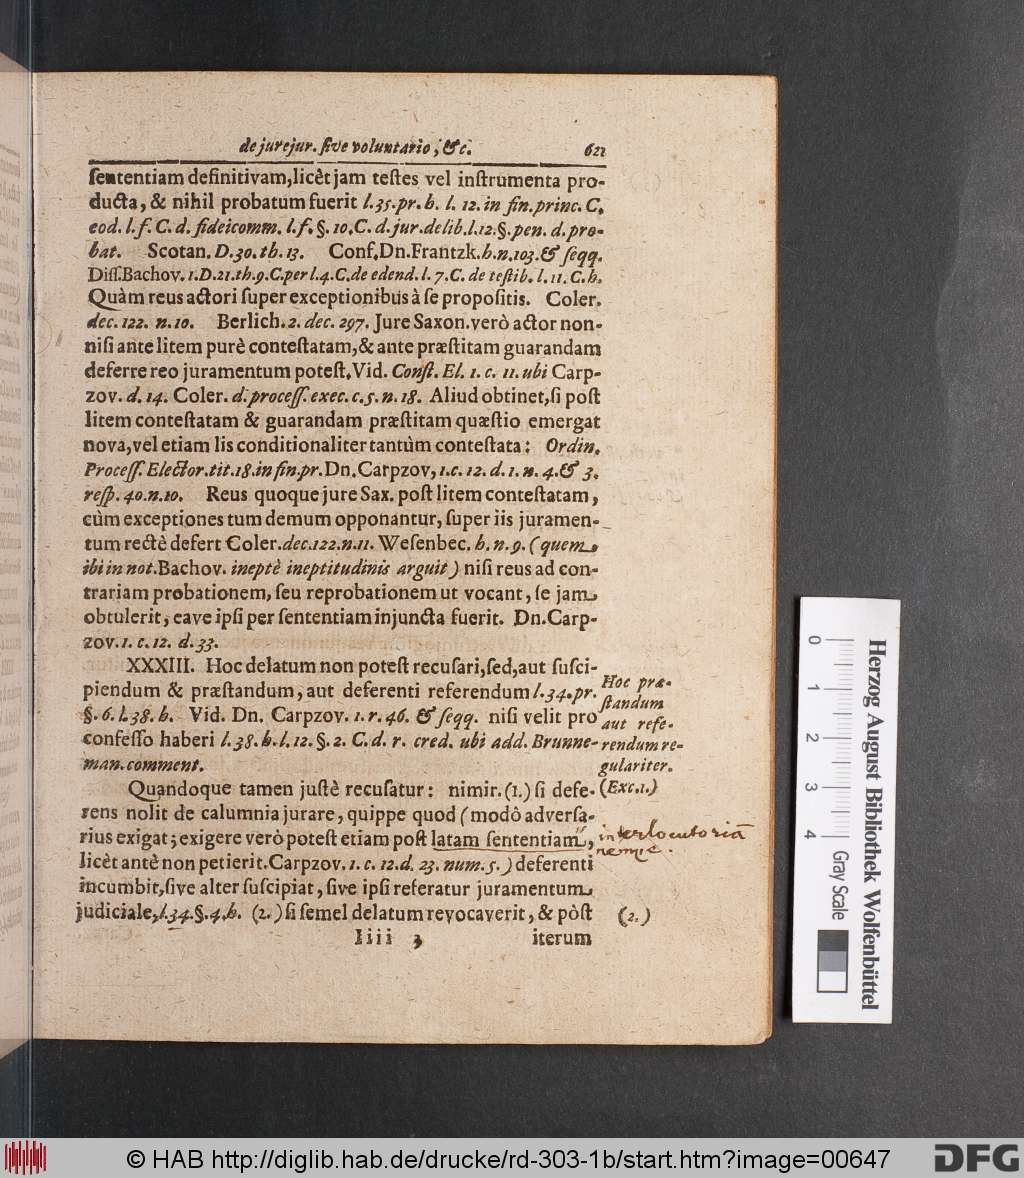 de jurejur. ſive voluntario, &c. 621
ſententiam definitivam, licèt jam teſtes vel inſtrumenta pro-
ducta, & nihil probatum fuerit l. 35. pr. h. l. 12. in fin. princ. C.
eod. l. f. C. d. fideicomm. l. f. §. 10. C. d. jur. delib. l. 12. §. pen. d. pro-
bat. Scotan. D. 30. th. 13. Conf. Dn. Frantzk. h. n. 103. & ſeqq.
Diſſ. Bachov. 1. D. 21. th. 9. C. per l. 4. C. de edend. l. 7. C. de teſtib. l. 11. C. h.
Quàm reus actori ſuper exceptionibus à ſe propoſitis. Coler.
dec. 122. n. 10. Berlich. 2. dec. 297. Jure Saxon. verò actor non-
niſi ante litem purè conteſtatam, & ante præſtitam guarandam
deferre reo juramentum poteſt. Vid. Conſt. El. 1. c. 11. ubi Carp-
zov. d. 14. Coler. d. proceſſ. exec. c. 5. n. 18. Aliud obtinet, ſi poſt
litem conteſtatam & guarandam præſtitam quæſtio emergat
nova, vel etiam lis conditionaliter tantùm conteſtata: Ordin.
Proceſſ. Elector. tit. 18. in fin. pr. Dn. Carpzov, 1. c. 12. d. 1. n. 4. & 3.
reſp. 40. n. 10. Reus quoque jure Sax. poſt litem conteſtatam,
cùm exceptiones tum demum opponantur, ſuper iis juramen-
tum rectè defert Coler. dec. 122. n. 11. Weſenbec. h. n. 9. (quem
ibi in not. Bachov. ineptè ineptitudinis arguit) niſi reus ad con-
trariam probationem, ſeu reprobationem ut vocant, ſe jam
obtulerit, eave ipſi per ſententiam injuncta fuerit. Dn. Carp-
zov. 1. c. 12. d. 33.
XXXIII. Hoc delatum non poteſt recuſari, ſed, aut ſuſci-
piendum & præſtandum, aut deferenti referendum l. 34. pr.
§. 6. l. 38. h. Vid. Dn. Carpzov. 1. r. 46. & ſeqq. niſi velit pro
confeſſo haberi l. 38. h. l. 12. §. 2. C. d. r. cred. ubi add. Brunne-
man. comment.
Hoc præ-
ſtandum
aut refe-
rendum re-
gulariter.
Quandoque tamen juſtè recuſatur: nimir. (1.) ſi defe-
(Exc. 1.)
rens nolit de calumnia jurare, quippe quod (modô adverſa-
rius exigat; exigere verò poteſt etiam poſt latam ſententiam,
interlocutoriā
nempe.
licèt antè non petierit. Carpzov. 1. c. 12. d. 23. num. 5.) deferenti
incumbit, ſive alter ſuſcipiat, ſive ipſi referatur juramentum
judiciale, l. 34. §. 4. h. (2.) ſi ſemel delatum revocaverit, & pòſt
(2.)
Iiii 3 iterum
0 1 2 3 4
Herzog August Bibliothek Wolfenbüttel
Gray Scale
© HAB http://diglib.hab.de/drucke/rd-303-1b/start.htm?image=00647
DFG